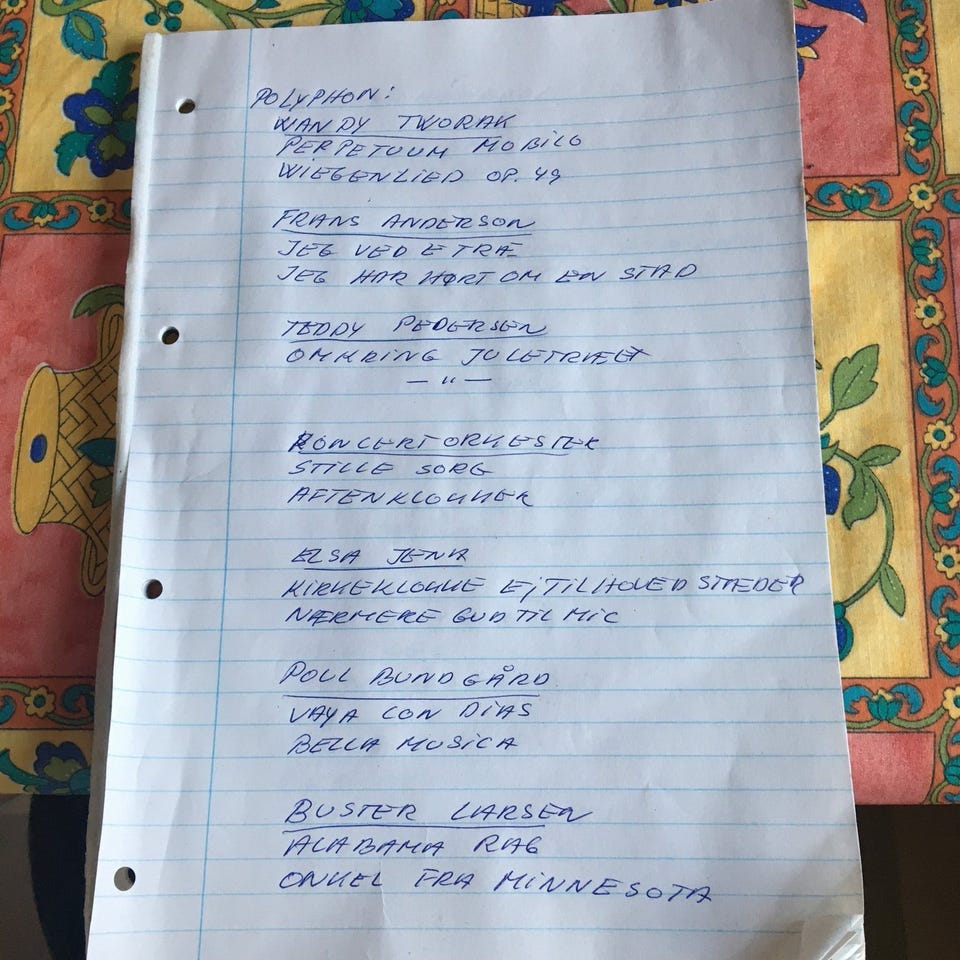 POLYPHON:
WANDY TWORAK
PERPETUUM MOBILO
WIEGENLIED OP. 49
FRANS ANDERSON
JEG VED E TRÆ
JEG HAR HØRT OM EN STAD
TEDDY PEDERSEN
OMKRING JULETRÆET
— " —
KONCERTORKESTER
STILLE SORG
AFTENKLOKKER
ELSA JENA
KIRKEKLOKKE EJ TIL HOVEDSTÆDER
NÆRMERE GUD TIL MIG
POUL BUNDGÅRD
VAYA CON DIAS
BELLA MUSICA
BUSTER LARSEN
ALABAMA RAG
ONKEL FRA MINNESOTA